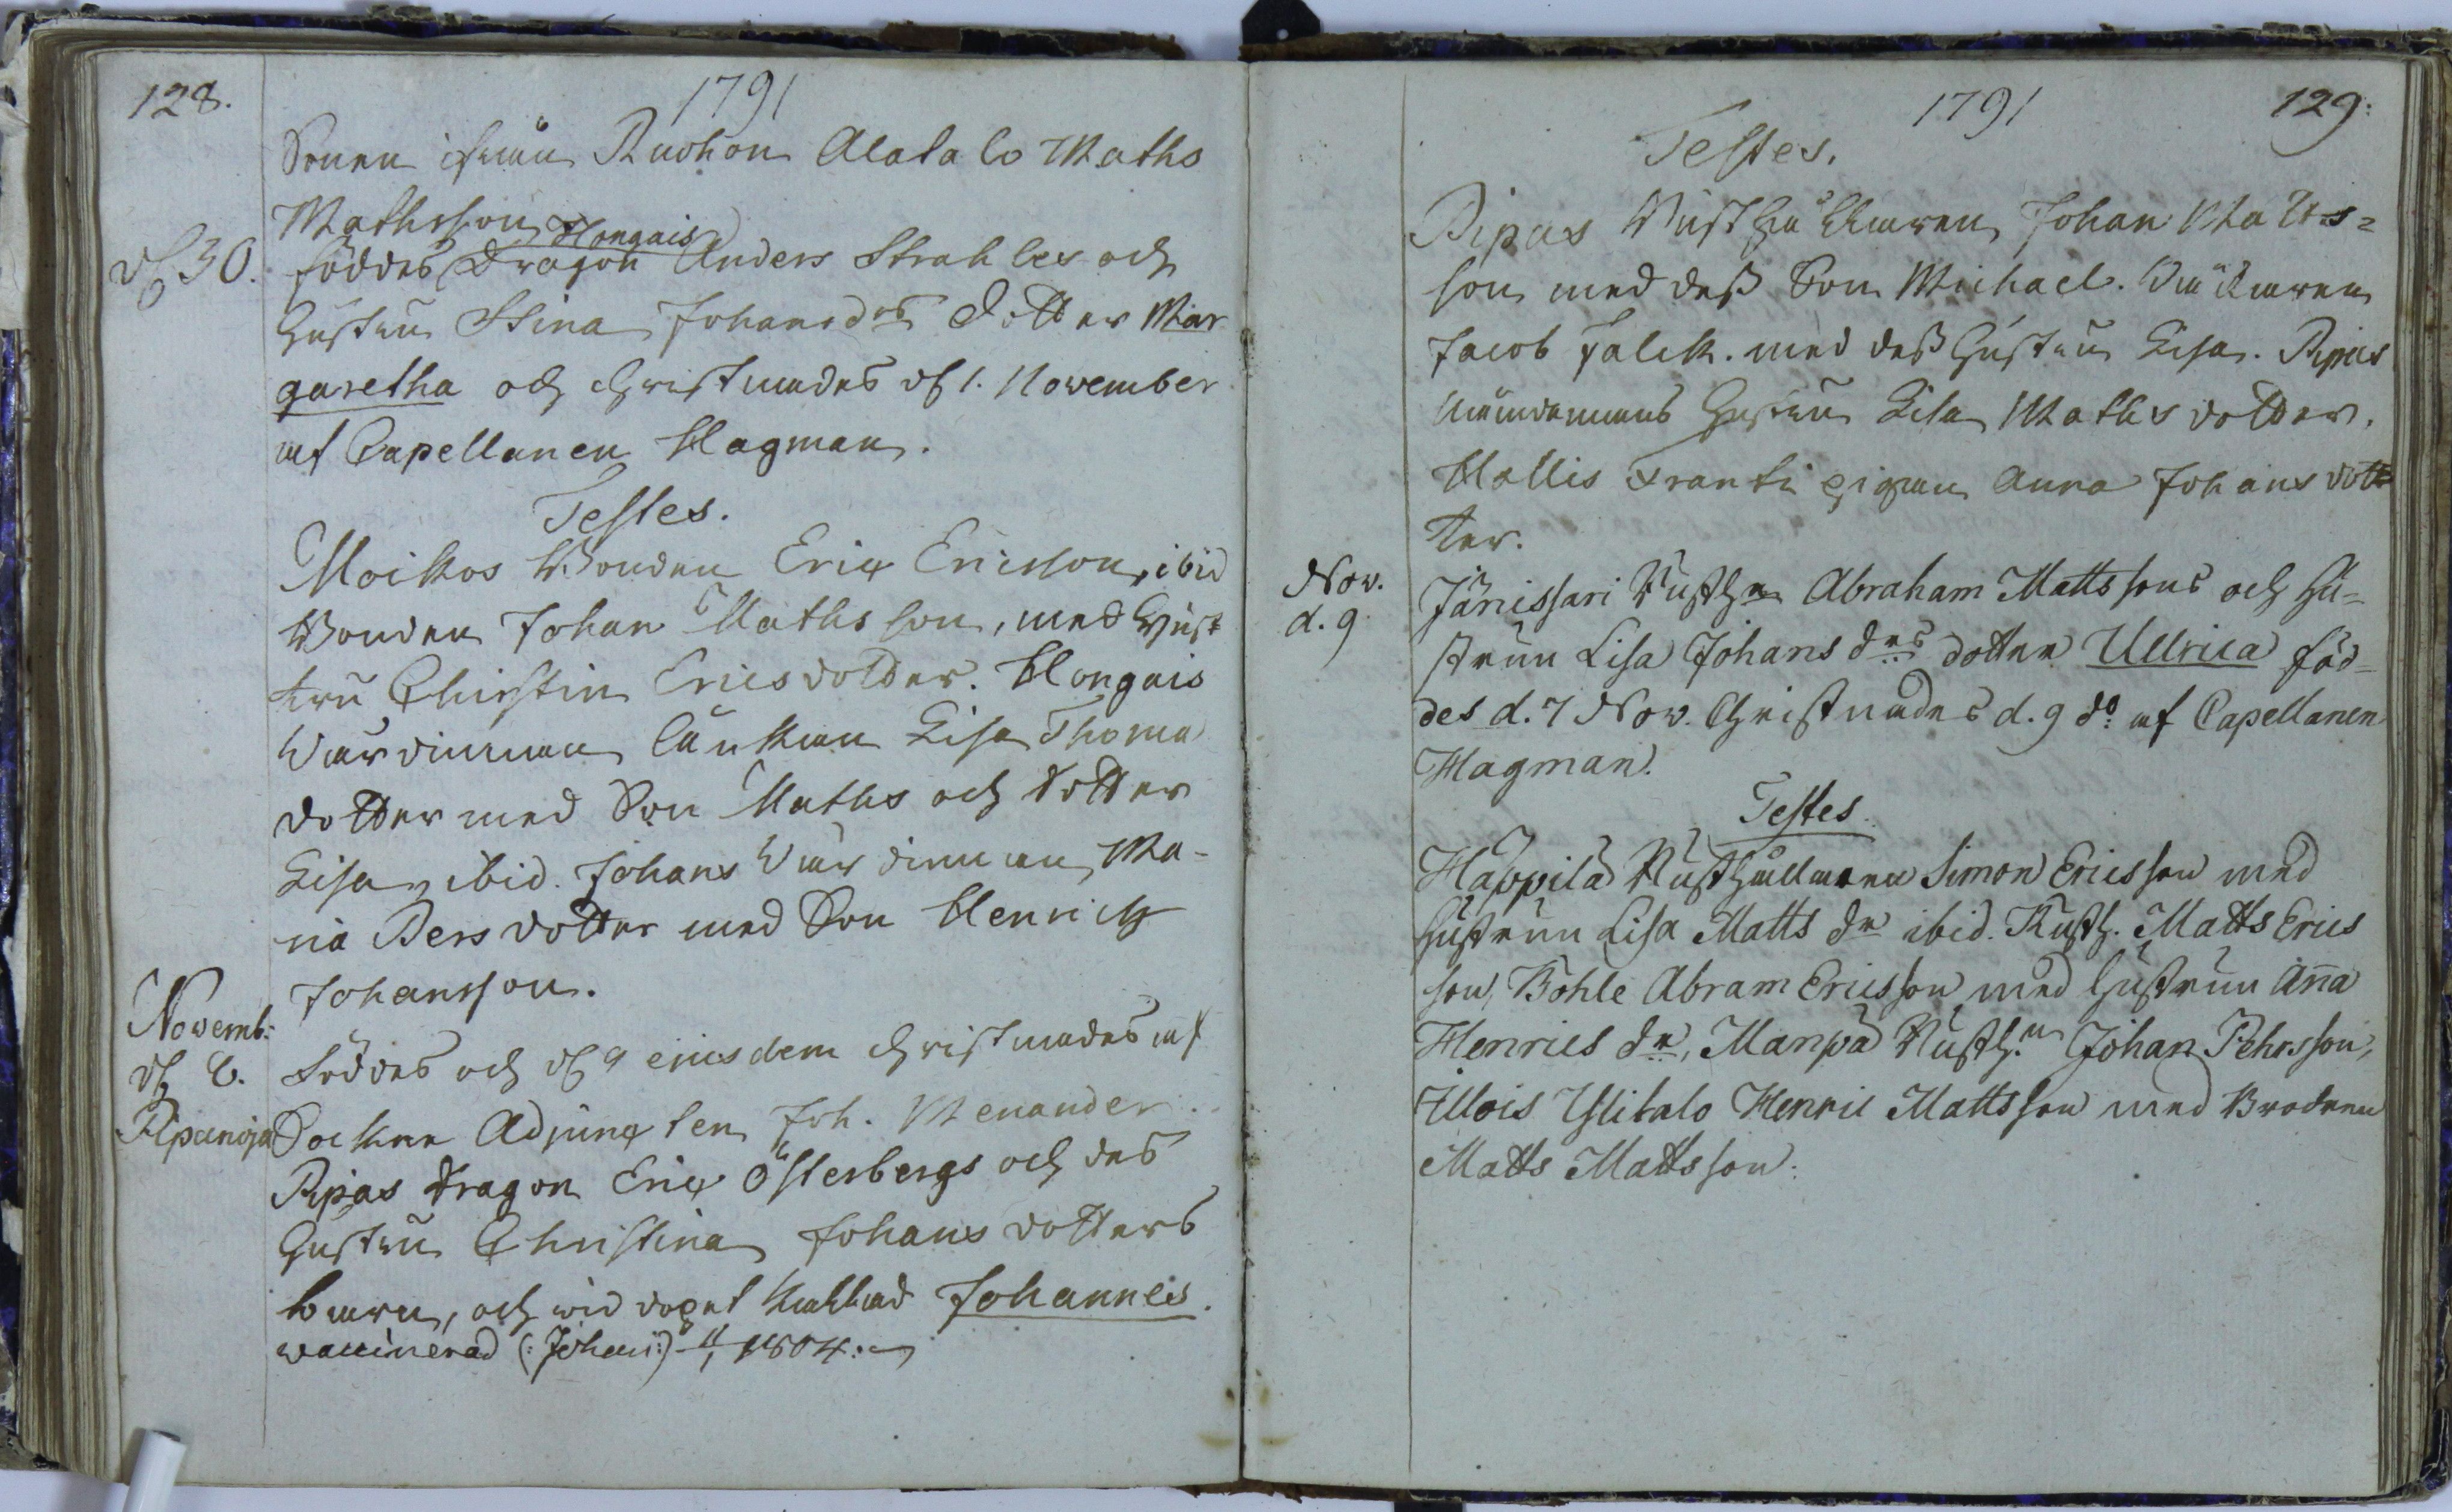 128.
1791
Sonen ifrån Ruohon Alatalo Maths
Mathsson
d 30. föddes Hongais Dragon Anders Strahles och
Hustrun Stina Johansdrs Dotter Mar
garetha och Christnades d 1. November
af Capellanen Hagman.
Testes.
Moikos Bonden Eric Ericsson, ibid
Bonden Johan Mathsson, med Hust
tru Chirstin Ericsdotter. Hongais
Wärdinnan Änkian Lisa Thoma
dotter med Son Maths och dotter
Lisa, ibid. Johans Wärdinnan Ma-
ria Persdotter med Son Henrich
Johansson.
Novemb:
d 6. Föddes och d 9 eiusdem christnades af
Ripanoja Sockne Adjuncten Joh. Menander.
Ripas Dragon Eric Österbergs och des
Hustru Christina Johans dotters
barn, och wid dopet kallad Johannes.
waccinerad (: Johan :) 1804:
1791
129:
Testes.
Ripas Rusthållaren Johan Matts=
son med dess Son Michael.
Jacob Falck. med dess Hustru Lisa. Ripas
Nämdemans Hustru Lisa Maths dotter.
Hollis Frantsi pigan Anna Johans dott
ter.
Nov.
d. 9. Jänissari Rusth:n Abraham Mattssons och Hu=
struns Lisa Johans drs dotter Ullrica föd-
des d. 7 Nov. Christnades d. 9 do: af Capellanen
Hagman.
Testes.
Happila Rusthållaren Simon Ericsson med
hustrun Lisa Matts dr ibid. Rusth. Matts Erics
son, Bohle Abram Ericsson med hustrun Aña
Henrics dr, Manpä Rusth:n Johan Pehrsson,
Illois Ylitalo Henric Mattsson med Brodren
Matts Mattsson.